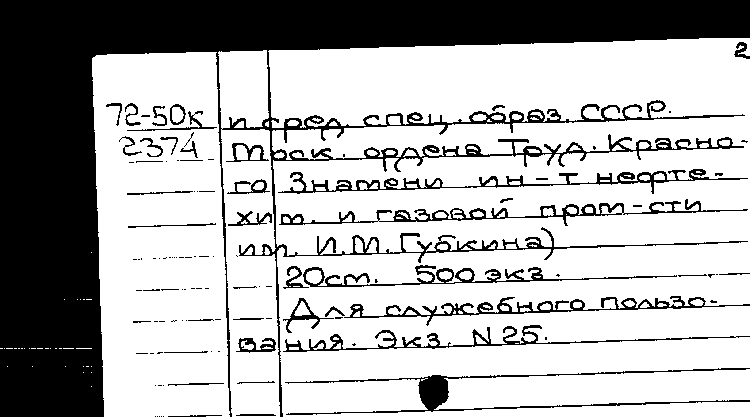 2
72-50к и сред. спец. образ. СССР.
2374 Моск. ордена Труд. Красно-
го Знамени ин-т нефте-
хим. и газовой пром-сти
им. И.М. Губкина)
20см. 500 экз.
Для служебного пользо-
вания. Экз. N 25.